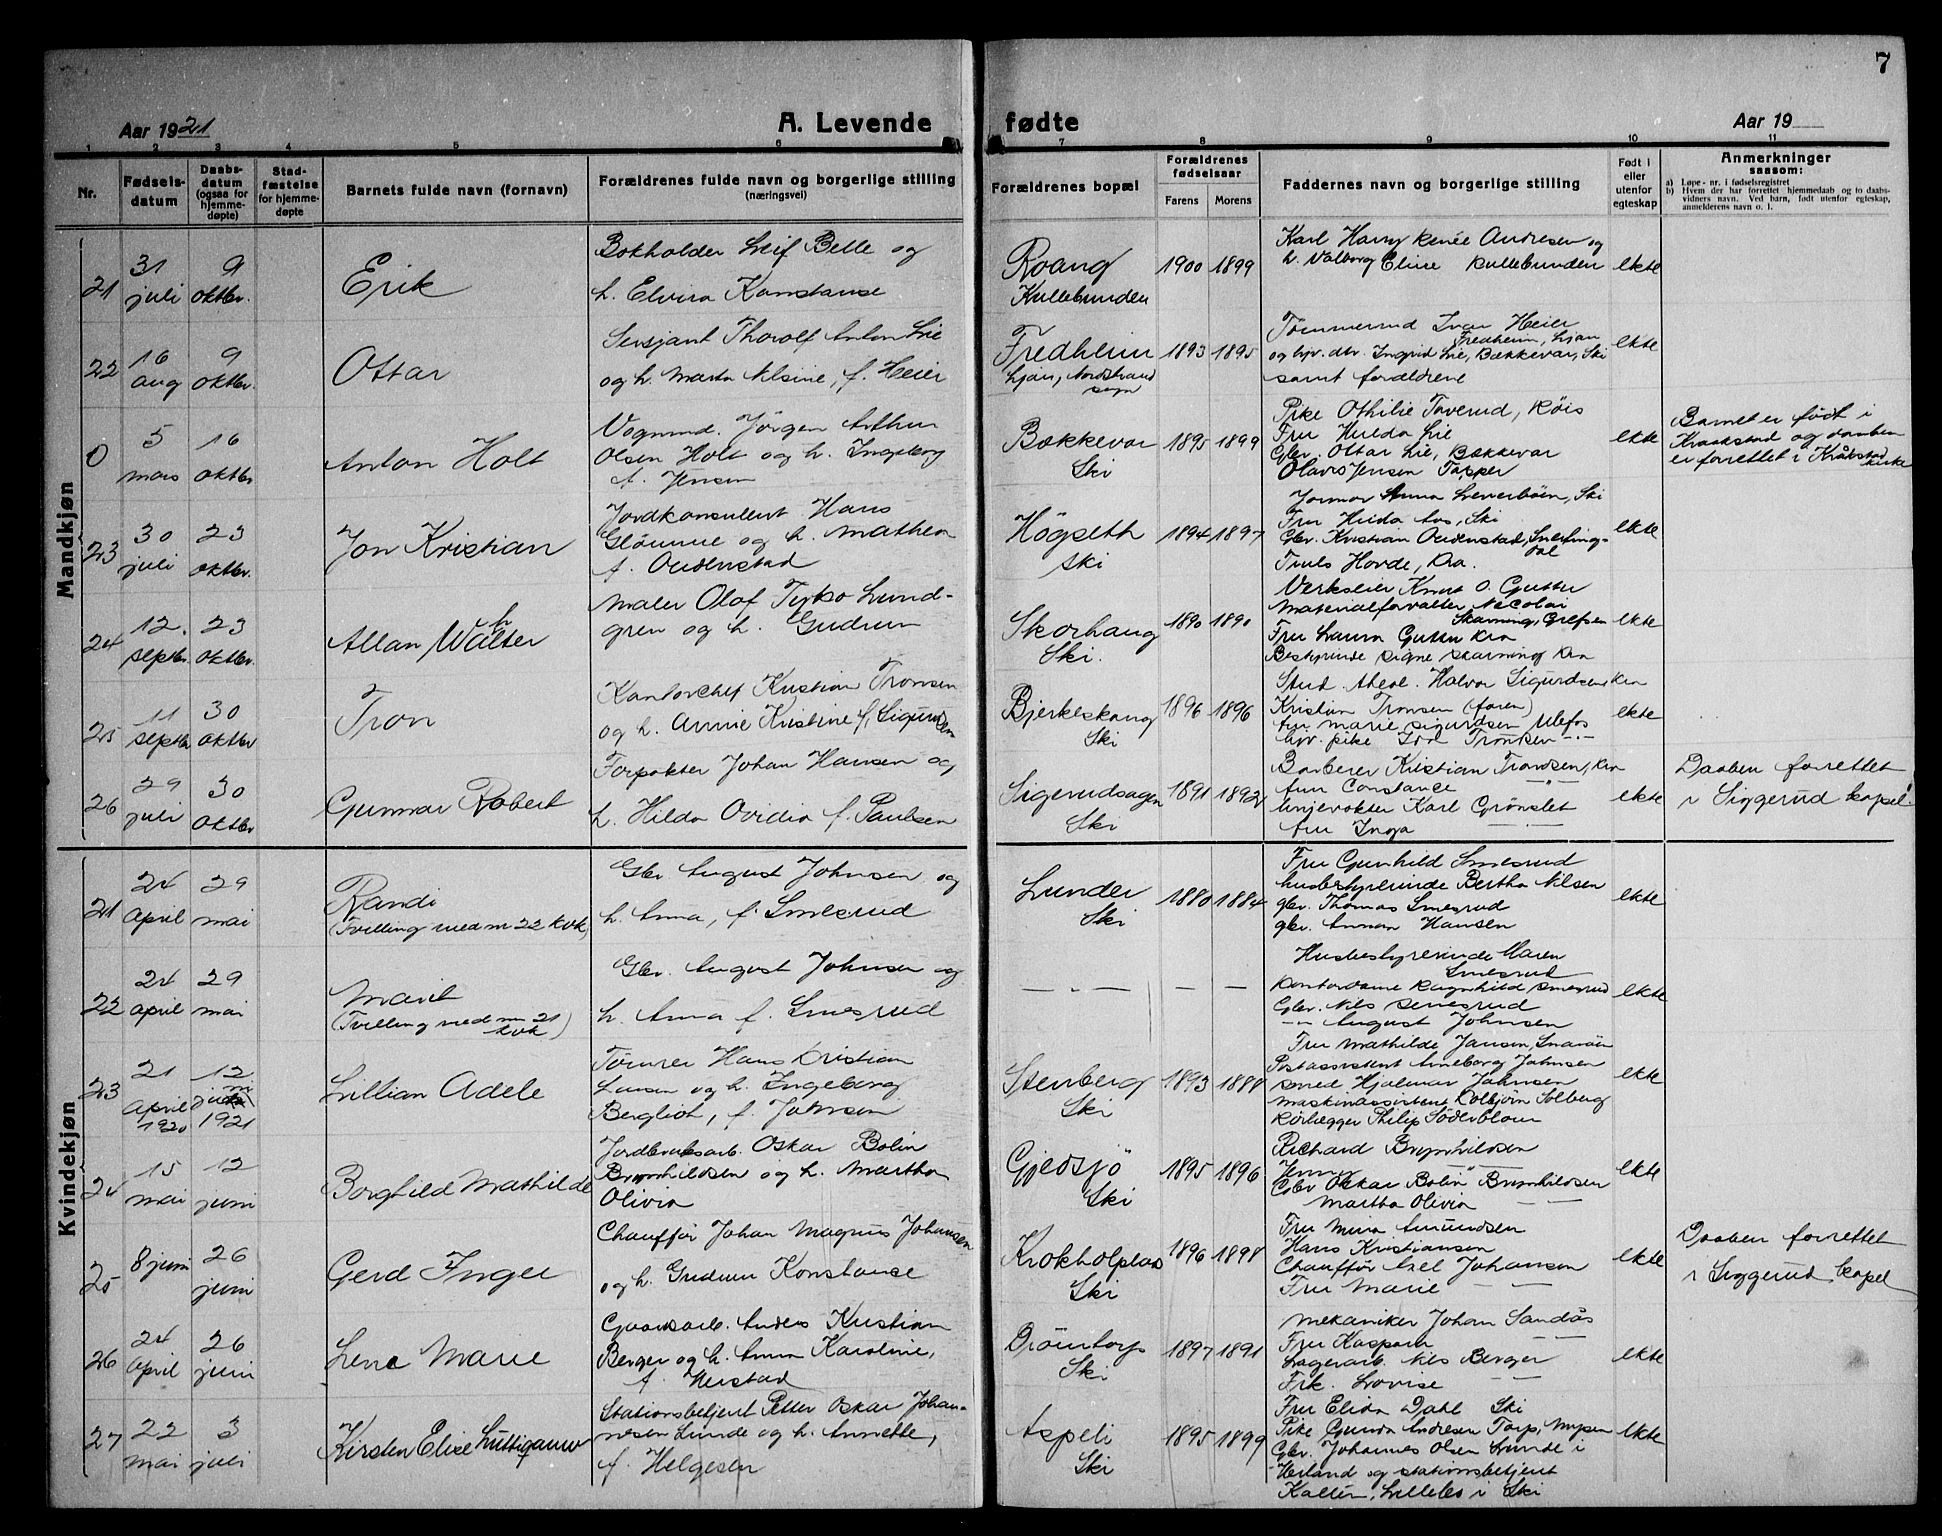 7
Aar 1921
A. Levende fødte
Aar 19
1 2 3 4 5 6 7 8 9 10 11
Nr.
Fødsels-
datum
Daabs-
datum
(ogsaa for
hjemme-
døpte)
Stad-
fæstelse
for hjemme-
døpte
Barnets fulde navn (fornavn)
Forældrenes fulde navn og borgerlige stilling
(næringsvei)
Forældrenes bopæl
Forældrenes
fødselsaar
Farens Morens
Faddernes navn og borgerlige stilling
Født i
eller
utenfor
egteskap
Anmerkninger
saasom:
a) Løpe-nr. i fødselsregistret
b) Hvem der har forrettet hjemmedaab og to daabs-
vidners navn. Ved barn, født utenfor egteskap,
anmelderens navn o. l.
Mandkjøn
21
31 juli
9 oktbr.
Erik
Bokholder Leif Belle og
h. Elvira Konstanse
Roang
Kullebunden
1900 1899
Karl Harry Renée Andresen og
h. Valborg Eline Kullebunden
ekte
22
16 aug
9 oktbr.
Ottar
Sersjant Thorolf Anton Lie
og h. Marta Nilsine, f. Heier
Fredheim
Ljan, Nordstrand
sogn
1893 1895
Tømmerud Ivar Heier
Fredheim, Ljan
og hjv. dtr. Ingrid Lie, Bækkevar, Ski
samt foreldrene
ekte
0
5 mars
16 oktbr
Anton Holt
Vognmd. Jørgen Arthur
Olsen Holt og h. Ingeborg
f. Jensen
Bækkevar
Ski
1895 1899
Pike Othilie Taverud, Røis
Fru Hulda Lie
Gbr. Ottar Lie, Bækkevar
Olavs Jensen Tasper
ekte
Barnet er født i
Kraakstad og daaben
er forrettet i Kråkstad
kirke
23
30 juli
23 oktbr.
Jon Kristian
Jordkonsulent Hans
Glømme og h. Mathea
f. Oudenstad
Høgseth
Ski
1894 1897
Jormor Anna Leverbøen, Ski
Fru Hilda Aas, Ski
Gbr. Kristian Oudenstad, Snertingdal
Truls Hovde, Kra.
ekte
24
12. septbr.
23 oktbr.
Allan Walther
Maler Olof Tycko Lund-
gren og h. Gudrun
Skorhaug
Ski.
1890 1890
Verkseier Knut O. Guttu
Materialforvalter Nicolai
Skarning, Grefsen
Fru Laura Guttu Kra
Bestyrinde Signe Skarning Kra
ekte
25
11 septbr
30 oktbr
Tron
Kontorchef Kristian Tronsen
og h. Annie Kristine f. Sigurdsen
Bjerkeskaug
Ski
1896 1896
Stud. theol. Halvor Sigurdsen Kra
Kristian Tronsen (faren)
fru Marie Sigurdsen Ulefos
hjv. pike Idol Tronsen -"-
ekte
26
29 juli
30 oktbr
Gunnar Robert
Forpakter Johan Hansen og
h. Hilda Ovidia f. Paulsen
Sigerudsagen
Ski
1891 1892
Barberer Kristian Trondsen, Kra
fru Constance -"-
linjevokter Karl Grönslet
fru Inga
ekte
Daaben forrettet
i Siggerud kapel.
Kvindekjøn
21
24 april
29 mai
Randi
(Tvilling med nr 22 kvk)
Gbr. August Johnsen og
h. Anna, f. Smesrud
Lunder
Ski
1880 1884
Fru Gunhild Smesrud
husbestyrerinde Bertha Nilsen
gbr. Thomas Smesrud
gbr. Annan Hansen
ekte
22
24 april
29 mai
Marit
(Tvilling med nr 21
kvk)
Gbr. August Johnsen og
h. Anna f. Smesrud
— — — — —
Husbestyrerinde Maren
Smesrud
Kontordame Ragnhild Smesrud
Gbr. Nils Smesrud
-"- August Johnsen
ekte
23
21 april 1920
12 juni 1921
Lillian Adele
Tømrer Hans Kristian
Larsen og h. Ingeborg
Bergliot, f. Johnsen
Stenberg
Ski
1893 1888
Fru Mathilde Jansen, Snarøen
Postassistent Anneborg Johnsen
smed Hjalmar Johnsen
Maskinassistent Kolbjørn Solberg
Rørlægger Philip Söderblom
ekte
24
15 mai
12 juni
Borghild Mathilde
Jordbruksarb. Oskar Bolin
Brynhildsen og h. Martha
Olivia
Gjedsjö
Ski
1895 1896
Richard Brynhildsen
Jenny -"-
Gbr. Oskar Bolin Brynhildsen
Martha Olivia
ekte
25
8 juni
26 juni
Gerd Inger
Chauffør Johan Magnus Johansen
og h. Gudrun Konstanse
Krokholplass
Ski
1896 1898
Fru Mina Amundsen
Hans Kristiansen
Chauffør Axel Johansen
Fru Marie -"-
ekte
Daaben forrettet
i Siggerud kapel
26
24 april
26 juni
Lena Marie
Gaardsarb. Anders Kristian
Berger og h. Anna Karoline,
f. Herstad
Drömtorp
Ski
1897 1891
Mekaniker Johan Sandås
Fru Kaspara
Lagerarb. Nils Berger
Frk. Lovise
ekte
27
22 mai
3 juli
Kirsten Elise
Stationsbetjent Petter Oskar Johan-
nesen Lunde og h. Annette,
f. Helgesen
Aspeli
Ski
1895 1899
Fru Elida Dahl Ski
Pike Gunda Andresen Torp, Mysen
Gbr. Johannes Olsen Lunde i
Herland og stationsbetjent
Kallen, Lilleløs i Ski
ekte